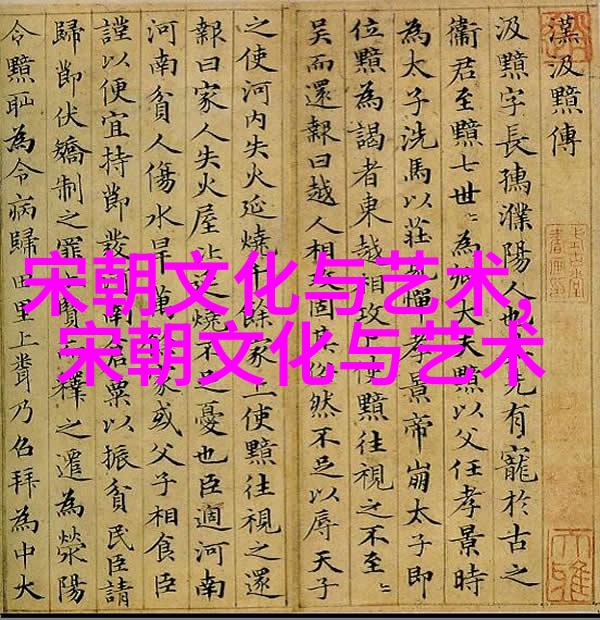 漢汲黯傳
汲黯字長孺濮陽人也先有寵於古之
衞君至黯七世〻為大夫黯以父任孝景時
為太子洗馬以莊見憚孝景帝崩太子即
位黯為謁者東越相攻上使黯往視之不至〻
吳而還報曰越人相攻固其俗然不足以辱天子
之使河内失火延燒千餘家上使黯往視之還
報曰家人失火屋比延燒不足憂也臣適河南
河南貧人傷水旱萬餘家或父子相食臣
謹以便宜持節發河南倉粟以振貧民臣請
歸節伏矯制之罪上賢而釋之遷為滎陽
令黯恥為令病歸田里上聞乃召拜為中大
宋朝文化与艺术,
宋朝文化与艺术